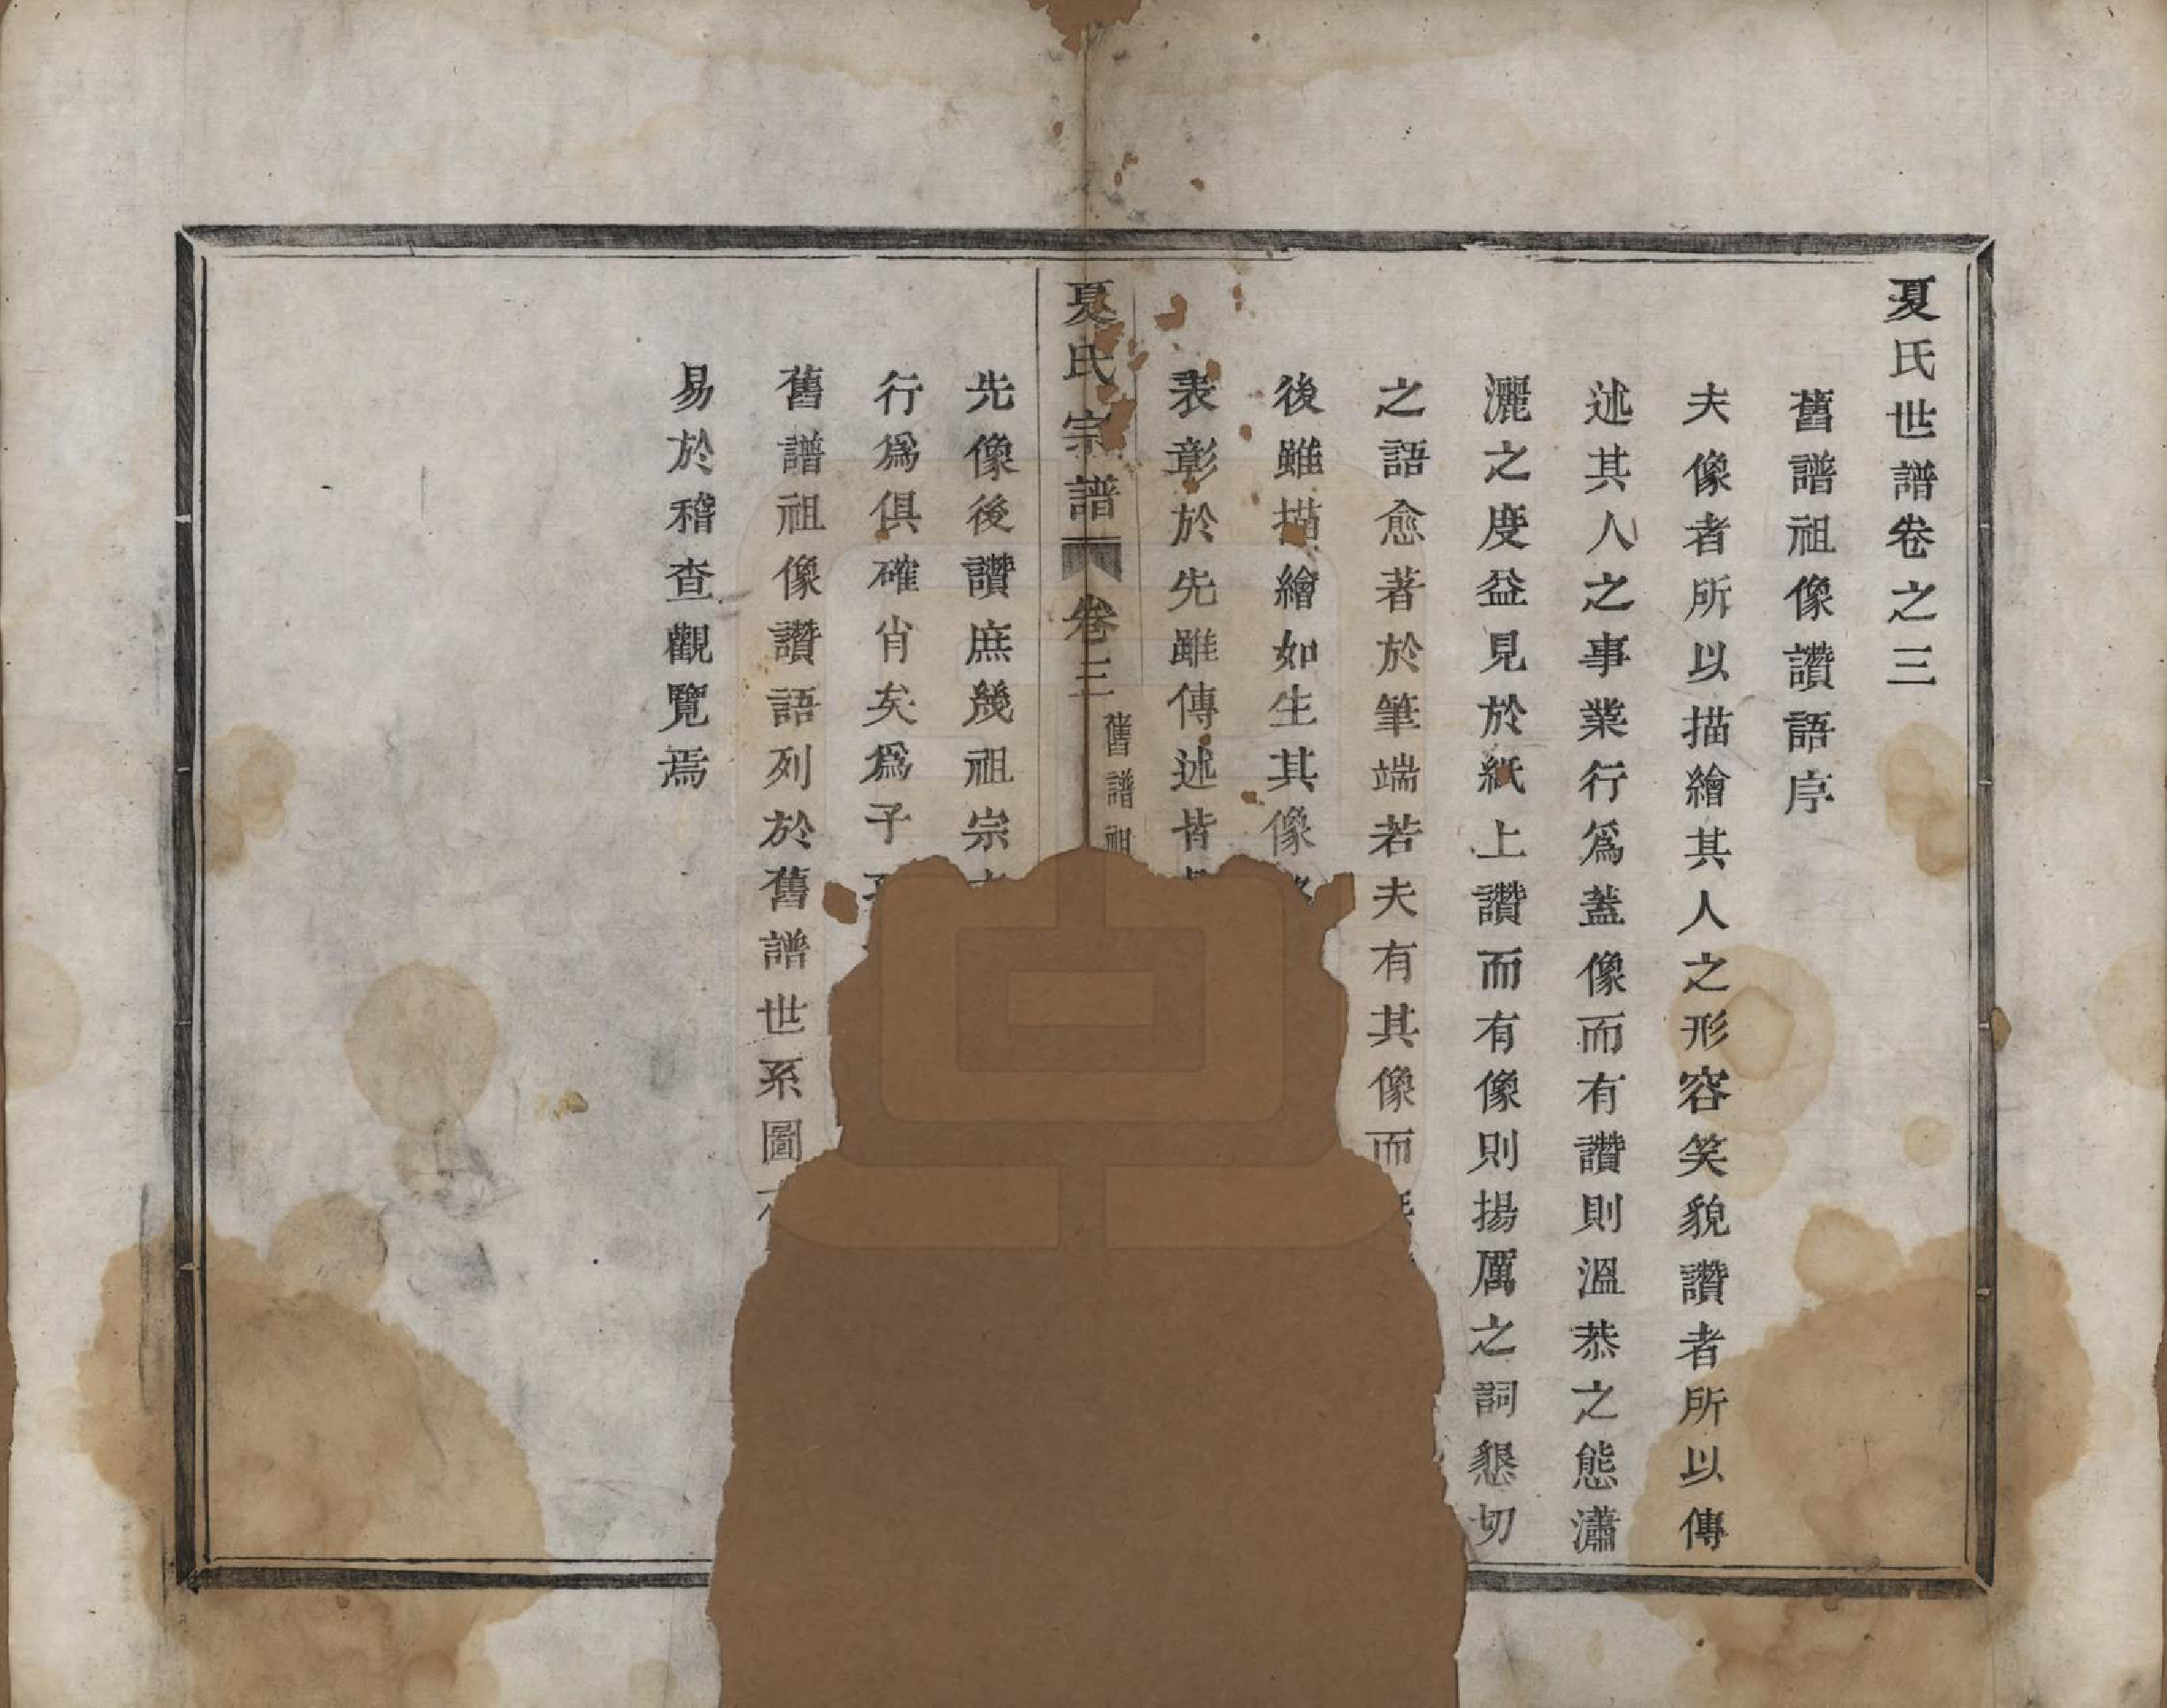 夏氏世譜卷之三
舊譜祖像讚語序
夫像者所以描繪其人之形容笑貌讚者所以傳
述其人之事業行爲蓋像而有讚則溫恭之態瀟
灑之度益見於紙上讚而有像則揚厲之詞懇切
之語愈著於筆端若夫有其像而
後雖描繪如生其像
表彰於先雖傳述皆
夏氏宗譜 卷三 舊譜祖
先像後讚庶幾祖宗
行爲俱確肖矣爲子
舊譜祖像讚語列於舊譜世系圖
易於稽查觀覽焉